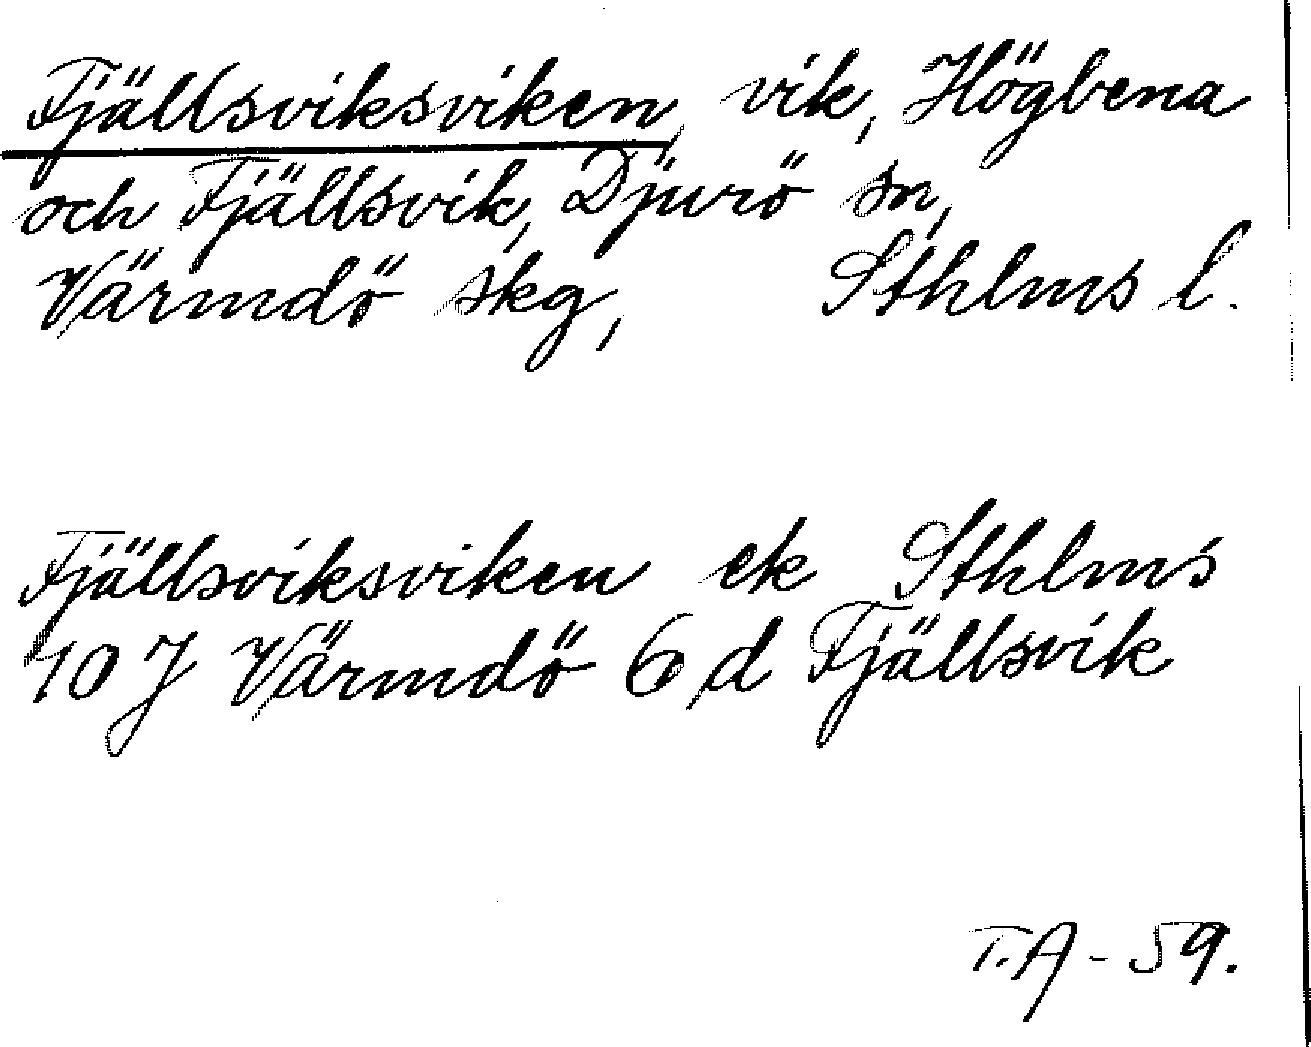 Fjällsviksviken, vik, Högbena
och Fjällsvik, Djurö sn,
Värmdö skg, Sthlms l.
Fjällsviksviken ek Sthlms
10 J Värmdö 6 d Fjällsvik
T.A - 59.